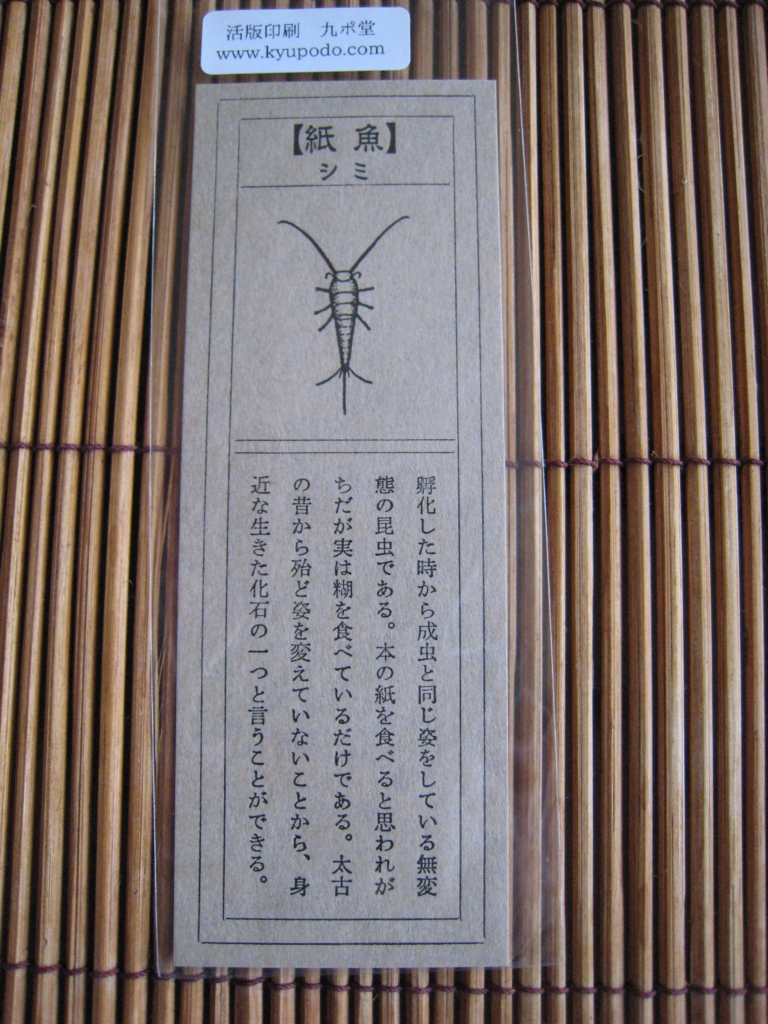 活版印刷 九ポ堂
www.kyupodo.com
【紙魚】
シミ
孵化した時から成虫と同じ姿をしている無変
態の昆虫である。本の紙を食べると思われが
ちだが実は糊を食べているだけである。太古
の昔から殆ど姿を変えていないことから、身
近な生きた化石の一つと言うことができる。